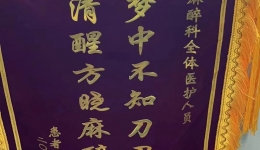 醉科全体医护人員
梦中不知刀
清醒方晓麻
患者